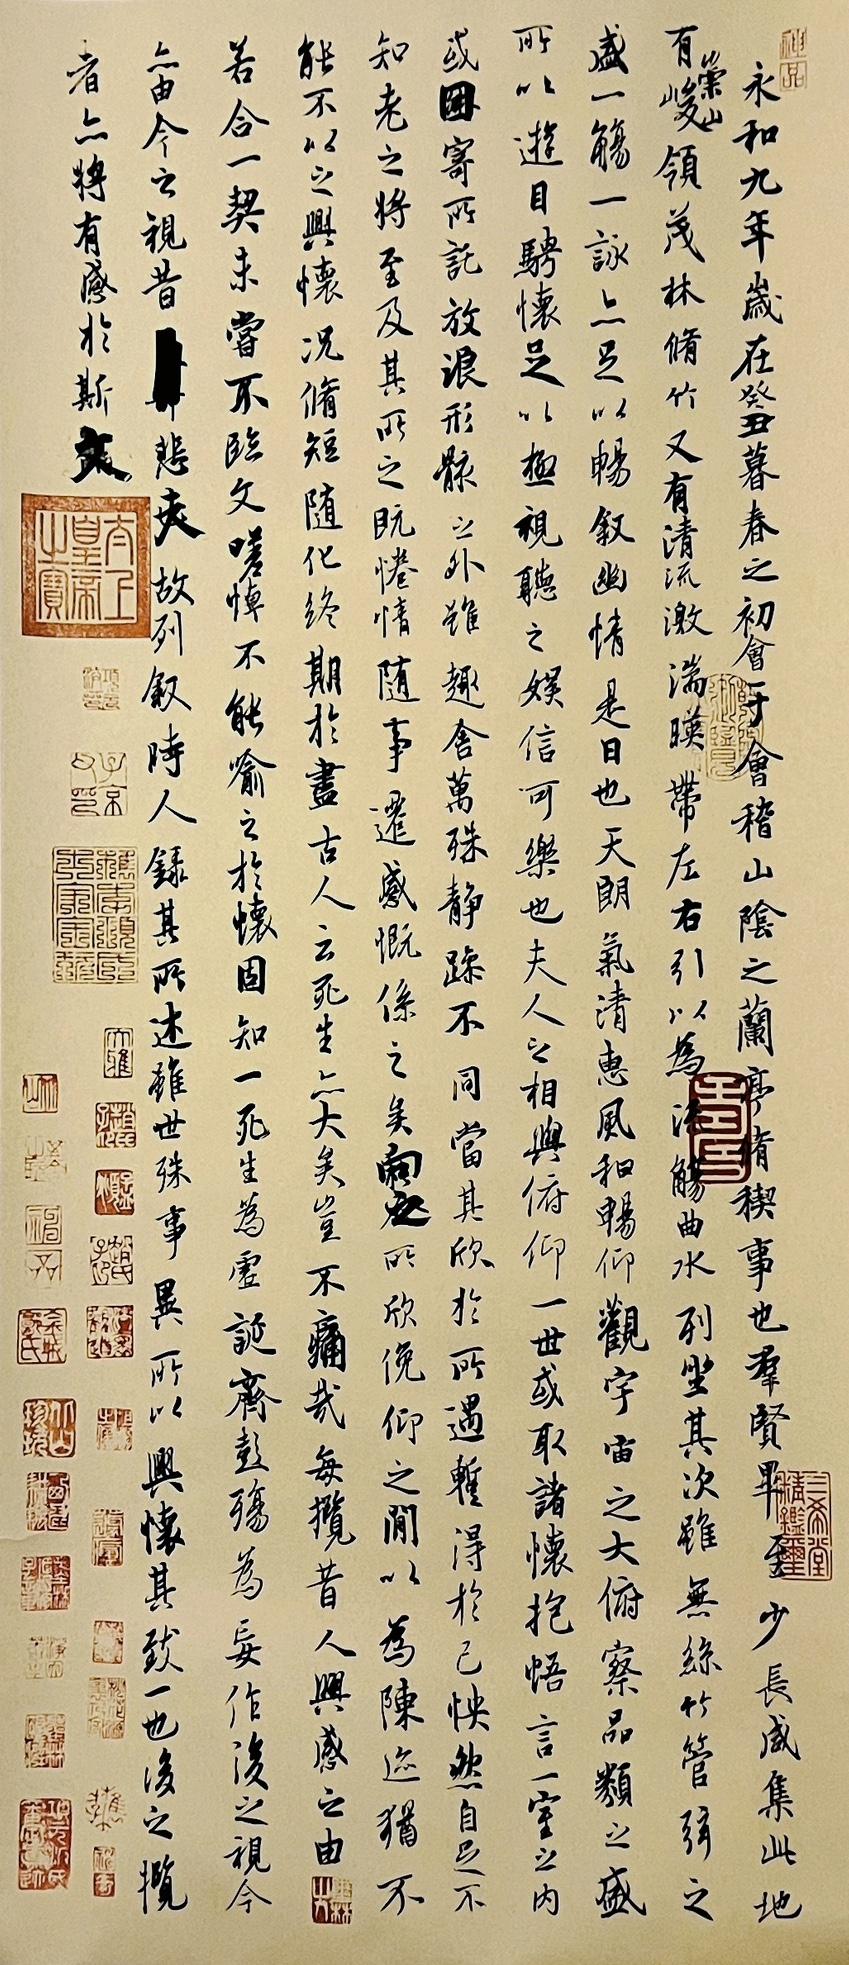 永和九年歲在癸丑暮春之初會于會稽山陰之蘭亭脩稧事也羣賢畢至少長咸集此地
有崇山峻領茂林脩竹又有清流激湍暎帶左右引以為流觴曲水列坐其次雖無絲竹管弦之
盛一觴一詠亦足以暢叙幽情是日也天朗氣清惠風和暢仰觀宇宙之大俯察品類之盛
所以遊目騁懷足以極視聽之娛信可樂也夫人之相與俯仰一世或取諸懷抱悟言一室之內
或因寄所託放浪形骸之外雖趣舍萬殊靜躁不同當其欣於所遇蹔得於己怏然自足不
知老之將至及其所之既惓情隨事遷感慨係之矣向之所欣俛仰之閒以為陳迹猶不
能不以之興懷况脩短隨化終期於盡古人云死生亦大矣豈不痛哉每攬昔人興感之由
若合一契未嘗不臨文嗟悼不能喻之於懷固知一死生為虛誕齊彭殤為妄作後之視今
亦由今之視昔悲夫故列叙時人錄其所述雖世殊事異所以興懷其致一也後之攬
者亦將有感於斯文
神品
太上皇帝之寶
三希堂精鑑璽